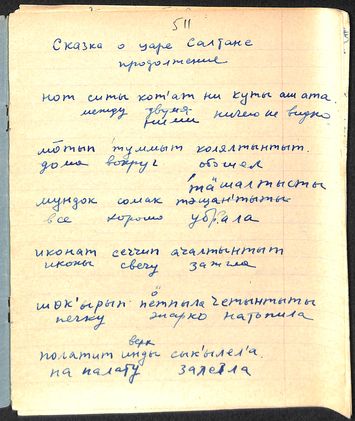 511
Сказка о царе Салтане
продолжение
нот ситы кот'ат ни куты ашата.
между двумя ничего не видно
ними
мōтып туммыт колялтынтыт.
дома вокруг обошел
тäшалтысты
мундок сомак тэщантыты
все хорошо убрала
иконат сеччип ачалтынтыт
иконы свечу зажгла
шок'ырып пётпыла четынтыты
печку жарко натопила
верх
полатит инды сык'ылел'а.
на палату залезла